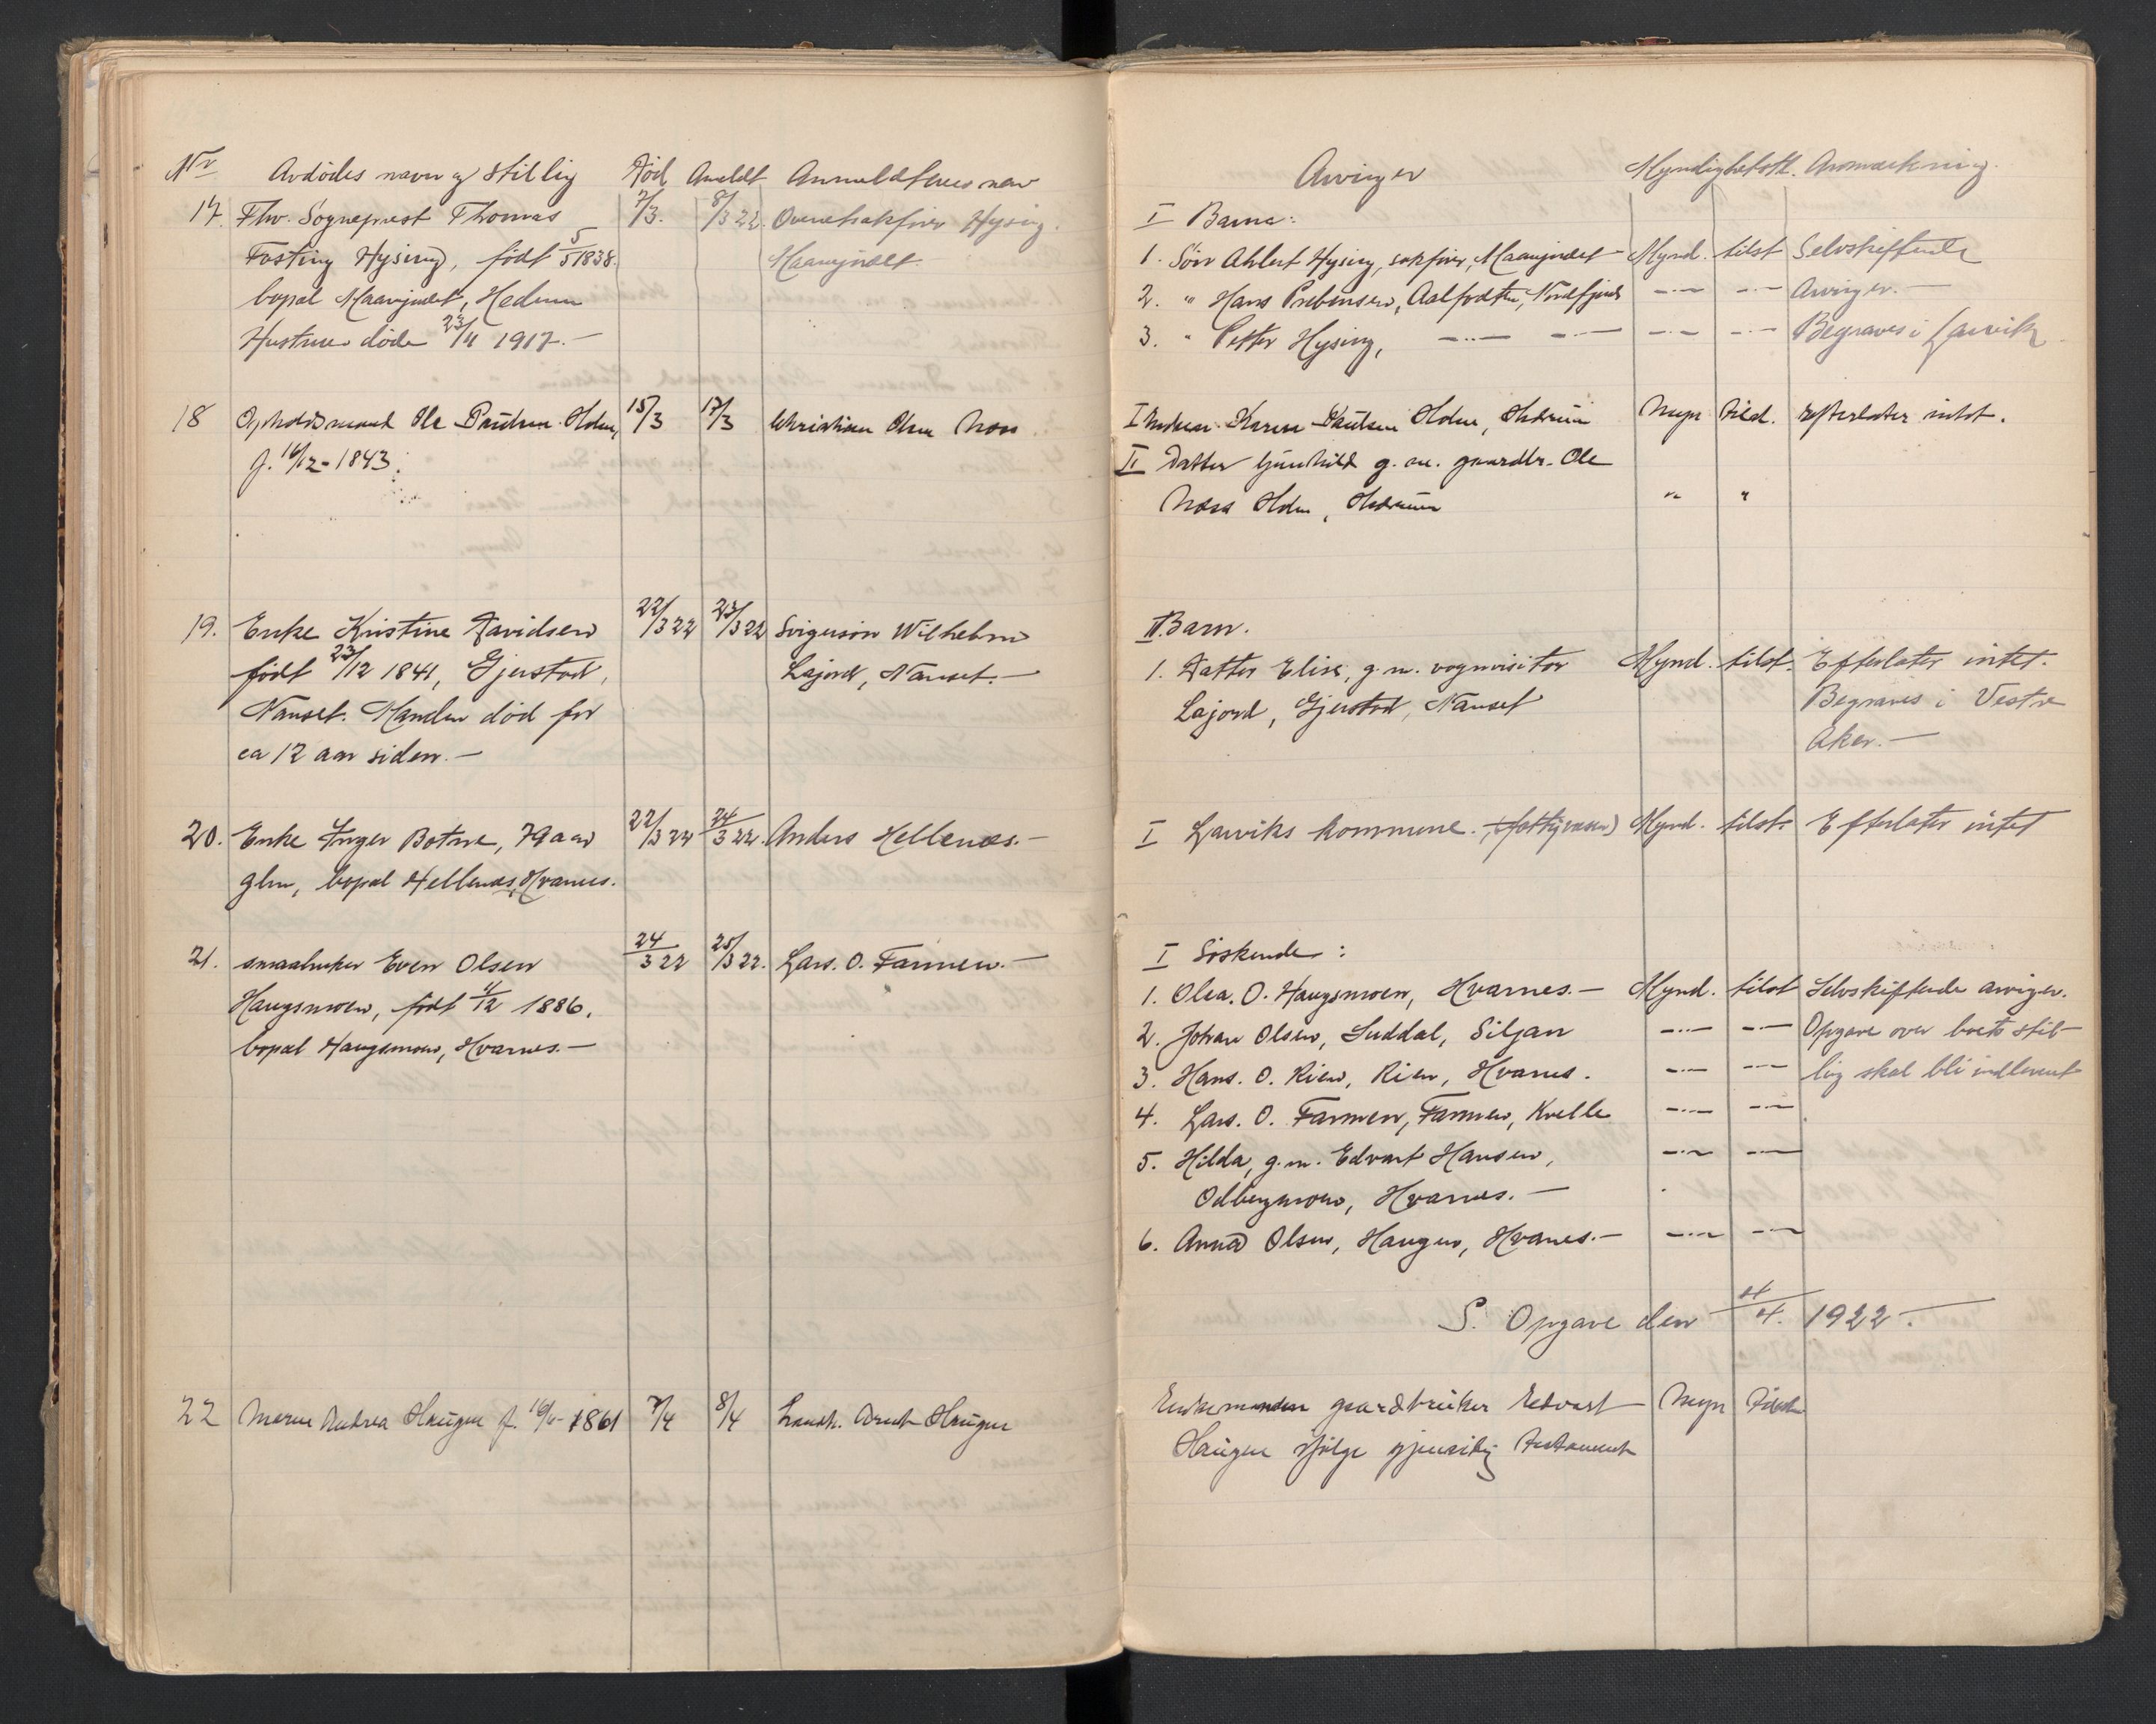 Nr Avdødes navn og stillig Død Anmeldt Anmeldernes navn
17. Fhv. Sogneprest Thomas 7/3. 8/3 22. Overretssakfører Hysing.
Fasting Hysing, født 5/5 1838.
bopæl Maanejordet, Hedrum
Hustrue døde 23/4 1917.—
18 Opholdsmand Ole Paulsen Holm, 15/3 17/3 Christian Olsen Moss
f. 16/12-1843.
19. Enke Kristine Davidsen 22/3 22 23/3 22 Svigersøn Wilhelm
født 23/12 1841, Gjerstad, Lajord, Nanset.—
Nanset. Manden død for
ca 12 aar siden.—
20. Enke Inger Botne, 79 aar 22/3 22 24/3 22. Anders Hellenes.—
glm, bopæl Hellenes, Hvarnes.
21. smaabruker Even Olsen 24/3 22 25/3 22. Lars. O. Farmen.—
Haugsmoen, født 11/12 1886.
bopæl Haugsmoen, Hvarnes.—
22 Maren Andrea Haugen f. 1861 7/4 8/4 Haugen
Arvinger Myndighetsst. Anmærkning.
I Barn:
1. Søn Ahlert Hysing, sakfører, Mynd. tilst Selvskiftende
2. " Hans Prebensen, Nordfjord —·— —·— Arvinger.—
3. " Petter Hysing, —··— —·— —·— —·— Begraves i Larvik.
I Karen Paulsen Holm, Hedrum Myn tilst. Efterlater intet.
II Datter Gunhild g. m. gaardbr. Ole
Moss Holm, Hedrum " "
II Barn.
1. Datter Elise, g. m. vognvisitør Mynd. tilst. Efterlater intet.
Lajord, Gjerstad, Nanset Begraves i Vestre
Aker.—
I Larviks kommune. (fattigvæsen) Mynd. tilst. Efterlater intet
I Søskende:
1. Olea. O. Haugsmoen, Hvarnes.— Mynd. tilst Selvskiftende arvinger.
2. Johan Olsen, Luddal, Siljan —··— —·— Opgave over boets stil-
3. Hans. O. Rien, Rien, Hvarnes. —·— —·— ling skal bli indlevert
4. Lars. O. Farmen, Farmen, Kvelle —··— —·—
5. Hilda, g. m. Edvart Hansen, —·— —·—
Odbergmoen, Hvarnes.—
6. Anna Olsen, Haugen, Hvarnes.— —·— —·—
S. Opgave den 4/4. 1922.—
Enkemanden gaardbruker Edvart Myn tilst
Haugen ifølge gjensidig testament